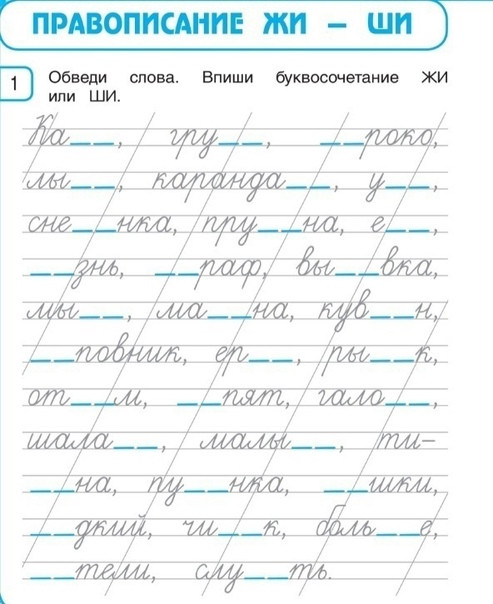 ПРАВОПИСАНИЕ ЖИ – ШИ
1 Обведи слова. Впиши буквосочетание ЖИ
или ШИ.
Ка__, гру__, __роко,
лы__, каранда__, у__,
сне__нка, пру__на, е__,
__знь, __раф, вы__вка,
мы__, ма__на, кув__н,
__повник, ер__, ры__к,
от__м, __пят, гало__,
шала__, малы__, ти–
__на, пу__нка, __шки,
__дкий, чи__к, боль__е,
__тели, слу__ть.